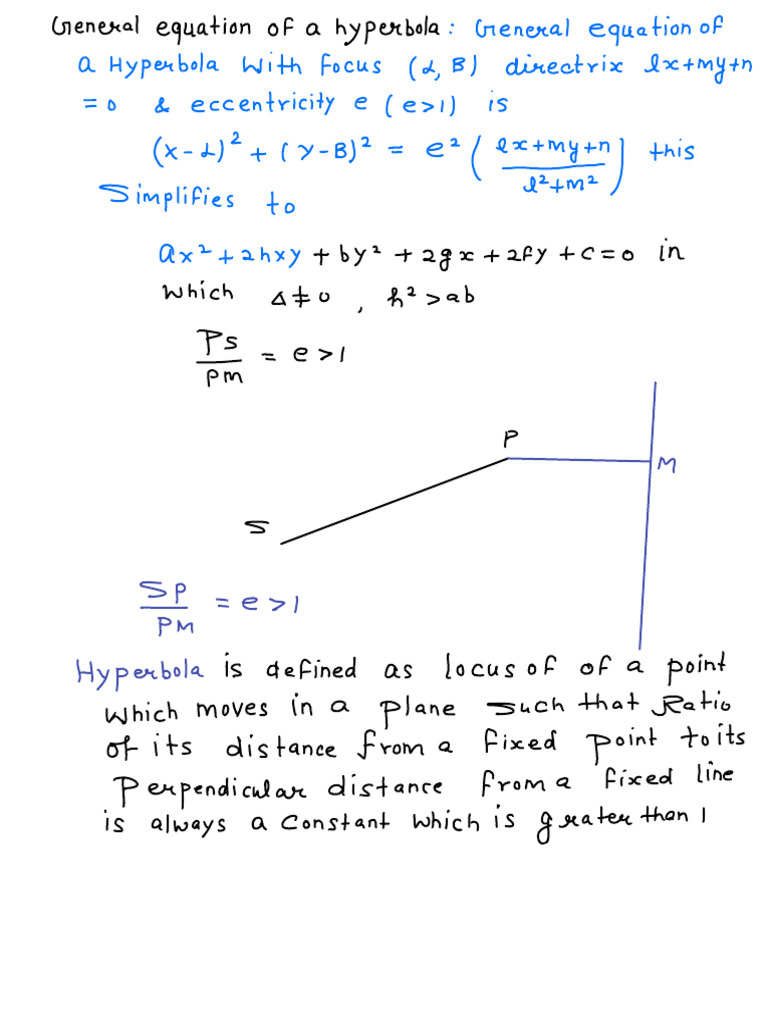 General equation of a hyperbola: General equation of
a Hyperbola with focus (α, B) directrix lx+my+n
=0 & eccentricity e (e>1) is
(x-α)² + (y-B)² = e² ( lx+my+n / l²+m² ) this
Simplifies to
ax² + 2hxy + by² + 2gx + 2fy + c = 0 in
which Δ≠0 , h² > ab
Ps / PM = e > 1
P
M
S
SP / PM = e > 1
Hyperbola is defined as locus of of a point
which moves in a plane such that Ratio
of its distance from a fixed point to its
Perpendicular distance from a fixed line
is always a constant which is greater than 1